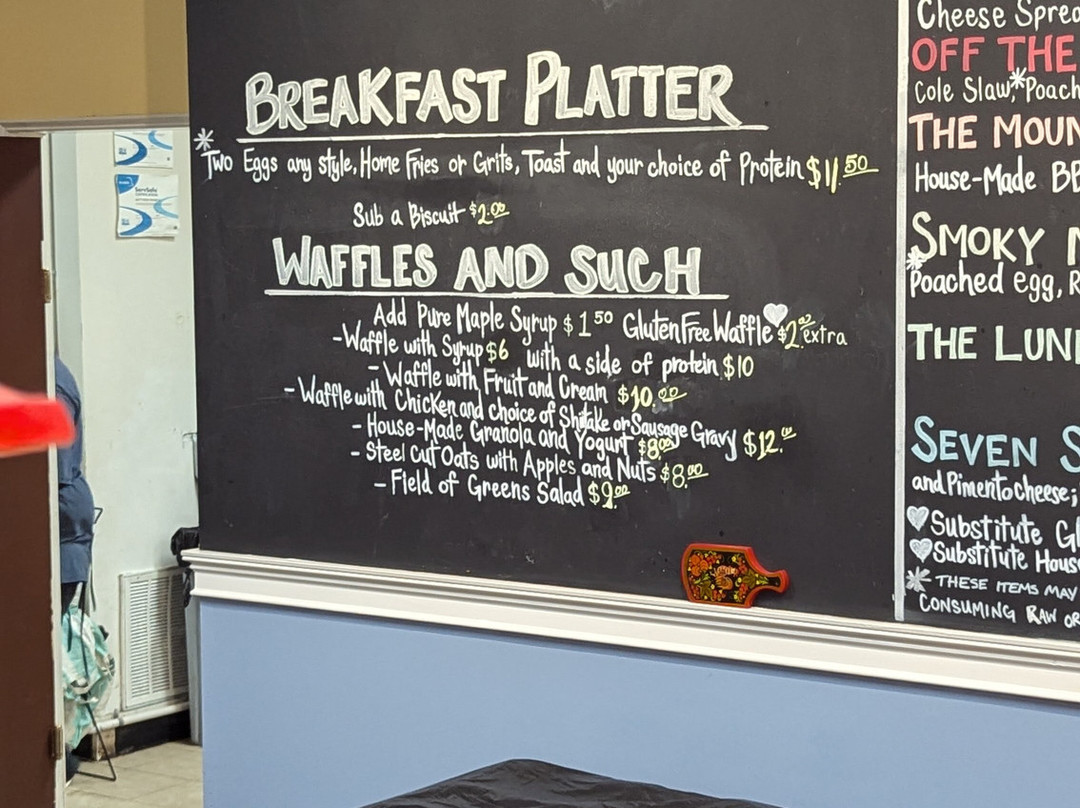 BREAKFAST PLATTER
*Two Eggs any style, Home Fries or Grits, Toast and your choice of Protein $11.50
Sub a Biscuit $2.00
WAFFLES AND SUCH
Add Pure Maple Syrup $1.50 Gluten Free Waffle $2.00 extra
-Waffle with Syrup $6 with a side of protein $10
-Waffle with Fruit and Cream $10.00
-Waffle with Chicken and choice of Shitake or Sausage Gravy $12.00
-House-Made Granola and Yogurt $8.00
-Steel Cut Oats with Apples and Nuts $8.00
-Field of Greens Salad $9.00
Cheese Sprea
OFF THE
Cole Slaw,*Poach
THE MOUN
House-Made BB
SMOKY
*Poached egg, R
THE LUN
SEVEN S
and Pimento cheese;
Substitute Gl
Substitute Hous
*THESE ITEMS MAY
CONSUMING RAW OR
ServSafe